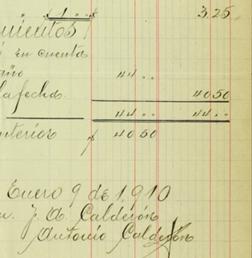 $ 1 .. 3.25
mientos
en cuenta
año 44 ..
la fecha 40 50
44 .. 44 ..
nterior $ 40 50
Enero 9 de 1910
J. A. Calderón
Antonio Calderón